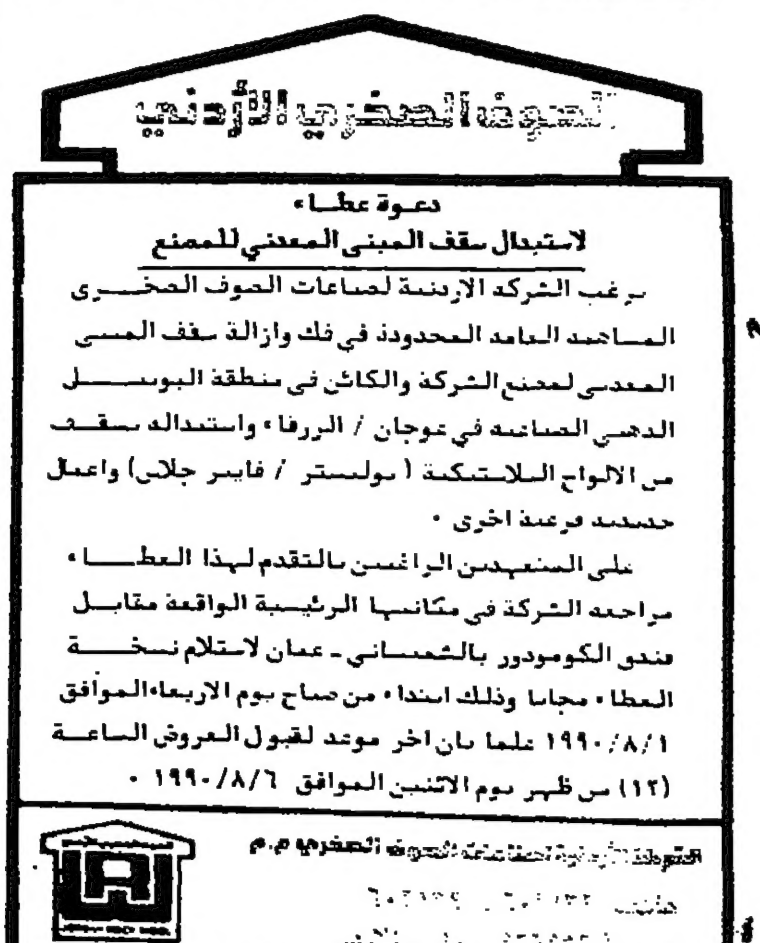 الصوف الصخري الأردني
دعوة عطاء
لاستبدال سقف المبنى المعدني للمصنع
ترغب الشركة الاردنية لصناعات الصوف الصخري
المساهمة العامة المحدودة في فك وازالة سقف المبنى
المعدني لمصنع الشركة والكائن في منطقة البوتيل
الصناعية في عوجان / الزرقاء واستبداله بسقف
من الالواح البلاستيكية ( بوليستر / فايبر جلاس) واعمال
حديدية فرعية اخرى ٠
على المتعهدين الراغبين بالتقدم لهذا العطاء
مراجعة الشركة في مكاتبها الرئيسية الواقعة مقابل
فندق الكومودور بالشميساني - عمان لاستلام نسخة
العطاء مجانا وذلك ابتداء من صباح يوم الاربعاء الموافق
١٩٩٠/٨/١ علما بان اخر موعد لقبول العروض الساعة
(١٢) من ظهر يوم الاثنين الموافق ١٩٩٠/٨/٦ ٠
الشركة الأردنية لصناعات الصوف الصخري م.م
هاتف